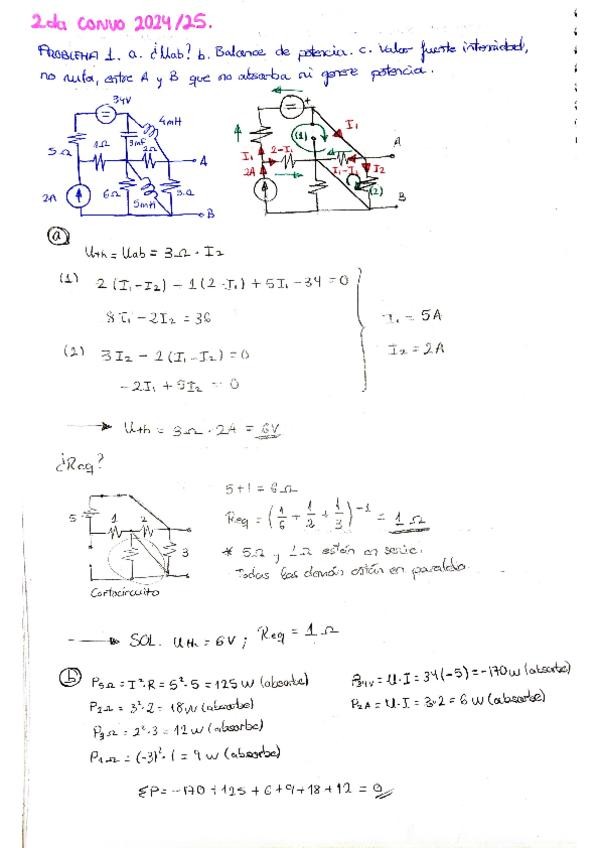 2da CONVO 2024/25.
PROBLEMA 1. a. ¿Uab? b. Balance de potencia. c. Valor fuente intensidad,
no nula, entre A y B que no absorba ni genere potencia.
34V
4mH
5Ω
1Ω
3mF
2Ω
A
2A
6Ω
5mH
3Ω
B
+
(1)
I₁
A
I₁
2-I₁
2A
I₁-I₂
I₂
(2)
B
a
Uth = Uab = 3Ω · I₂
(1) 2(I₁-I₂) - 1(2-I₁) + 5I₁ - 34 = 0
8I₁ - 2I₂ = 36
I₁ = 5A
I₂ = 2A
(2) 3I₂ - 2(I₁-I₂) = 0
-2I₁ + 5I₂ = 0
→ Uth = 3Ω · 2A = 6V
¿Req?
5
1
2
3
Cortocircuito
5+1 = 6Ω
Req = (1/6 + 1/2 + 1/3)⁻¹ = 1Ω
* 5Ω y 1Ω están en serie.
Todas las demás están en paralelo.
→ SOL. Uth = 6V ; Req = 1Ω
b P5Ω = I²·R = 5²·5 = 125W (absorbe) P34V = U·I = 34(-5) = -170W (absorbe)
P2Ω = 3²·2 = 18W (absorbe) P2A = U·I = 3·2 = 6W (absorbe)
P3Ω = 2²·3 = 12W (absorbe)
P1Ω = (-3)²·1 = 9W (absorbe)
ΣP = -170 + 125 + 6 + 9 + 18 + 12 = 0